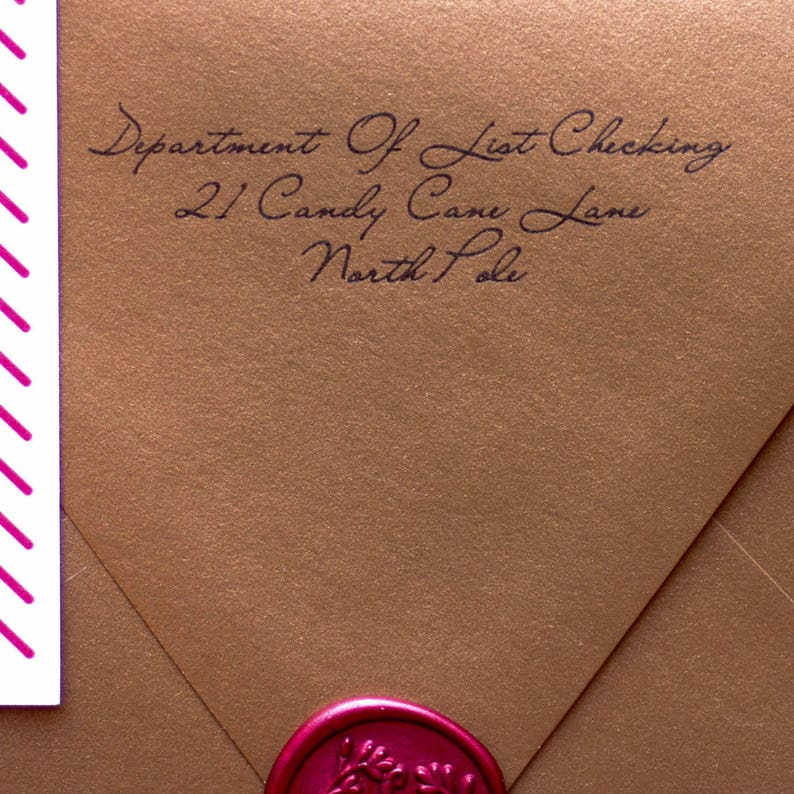 Department Of List Checking
21 Candy Cane Lane
North Pole